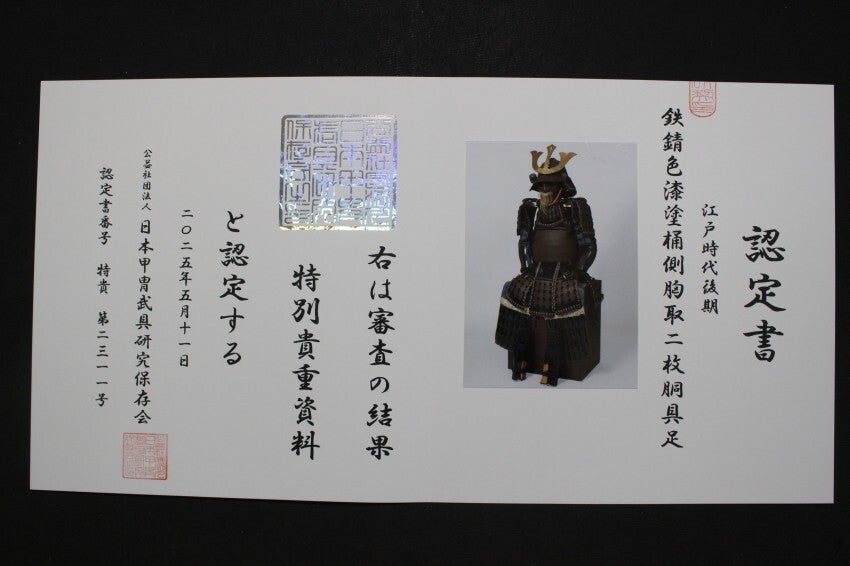 認定書
江戸時代後期
鉄錆色漆塗桶側胸取二枚胴具足
右は審査の結果
特別貴重資料
と認定する
二〇二五年五月十一日
公益社団法人 日本甲冑武具研究保存会
認定書番号 特貴 第二三一一号